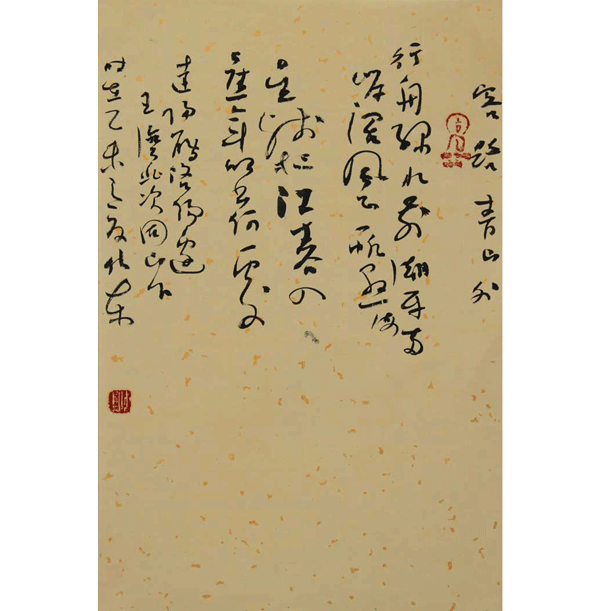 客路青山外
行舟绿水前潮平两
岸阔风正一帆悬海
日生残夜江春入
旧年乡书何处
达归雁洛阳边
王湾北次固山下
时在乙未之夏